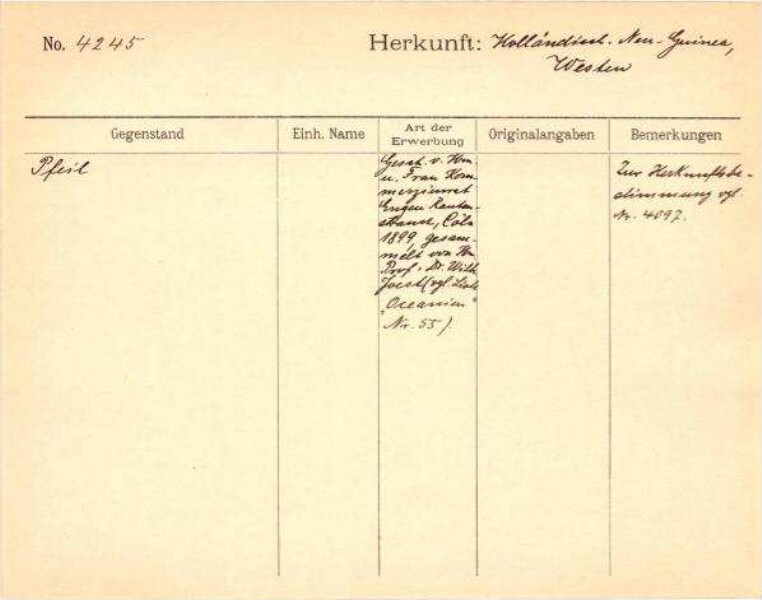 No. 4245
Herkunft: Holländisch-Neu-Guinea,
Westen
Gegenstand
Einh. Name
Art der
Erwerbung
Originalangaben
Bemerkungen
Pfeil
Gesch. v. Hrn.
u. Frau Kom-
merzienrat
Eugen Rauten-
strauch, Cöln
1899, gesam-
melt von Hn.
Prof. Dr. Wilh.
Joest (vgl. Liste
"Oceanien"
Nr. 55).
Zur Herkunftsbe-
stimmung vgl.
Nr. 4097.